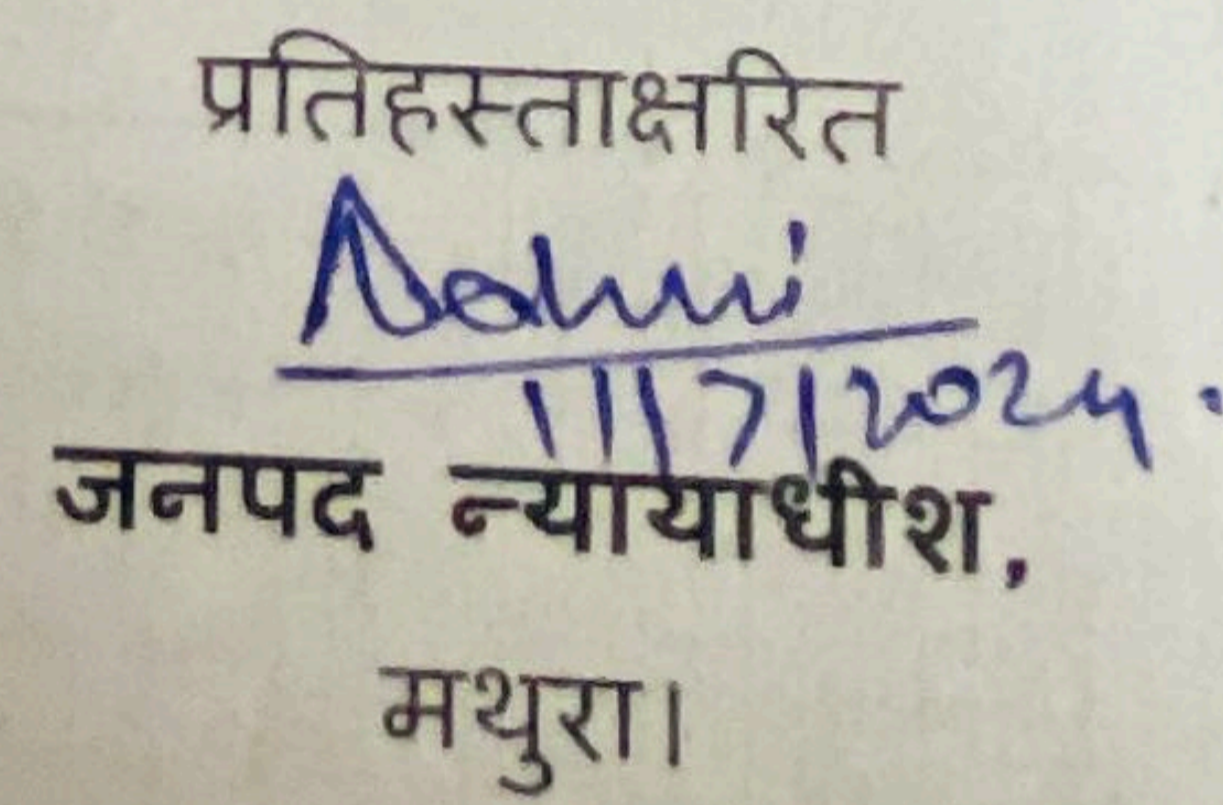 प्रतिहस्ताक्षरित
11/7/2024.
जनपद न्यायाधीश,
मथुरा।